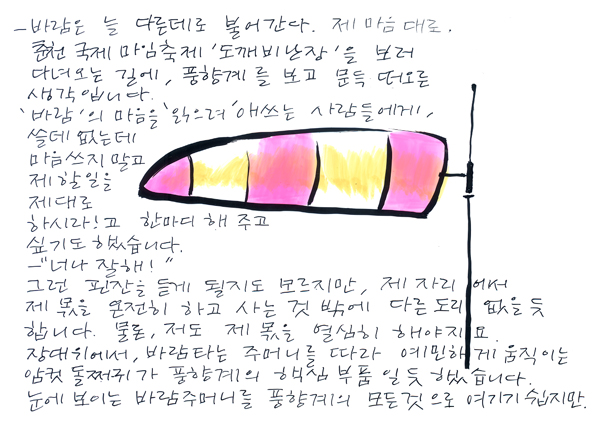 -바람은 늘 다른데로 불어간다. 제 마음대로.
춘천 국제 마임축제 '도깨비난장'을 보러
다녀오는 길에, 풍향계를 보고 문득 떠오른
생각입니다.
'바람'의 마음을 '읽으려' 애쓰는 사람들에게,
쓸데 없는데
마음쓰지 말고
제 할 일을
제대로
하시라!고 한마디 해 주고
싶기도 했습니다.
-"너나 잘해!"
그런 핀잔을 듣게 될지도 모르지만, 제 자리에서
제 몫을 온전히 하고 사는 것 밖에 다른 도리 없을 듯
합니다. 물론, 저도 제 몫을 열심히 해야지요.
장대위에서, 바람타는 주머니를 따라 예민하게 움직이는
암컷 돌쩌귀가 풍향계의 핵심 부품 일듯 했습니다.
눈에 보이는 바람주머니를 풍향계의 모든것으로 여기기 쉽지만.